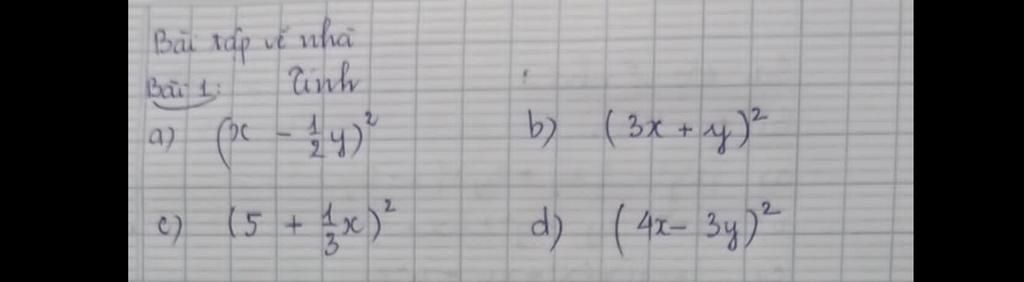 Bài tập về nhà
Bài 1: Tính
a) (x - 1/2 y)² b) (3x + y)²
c) (5 + 1/3 x)² d) (4x - 3y)²